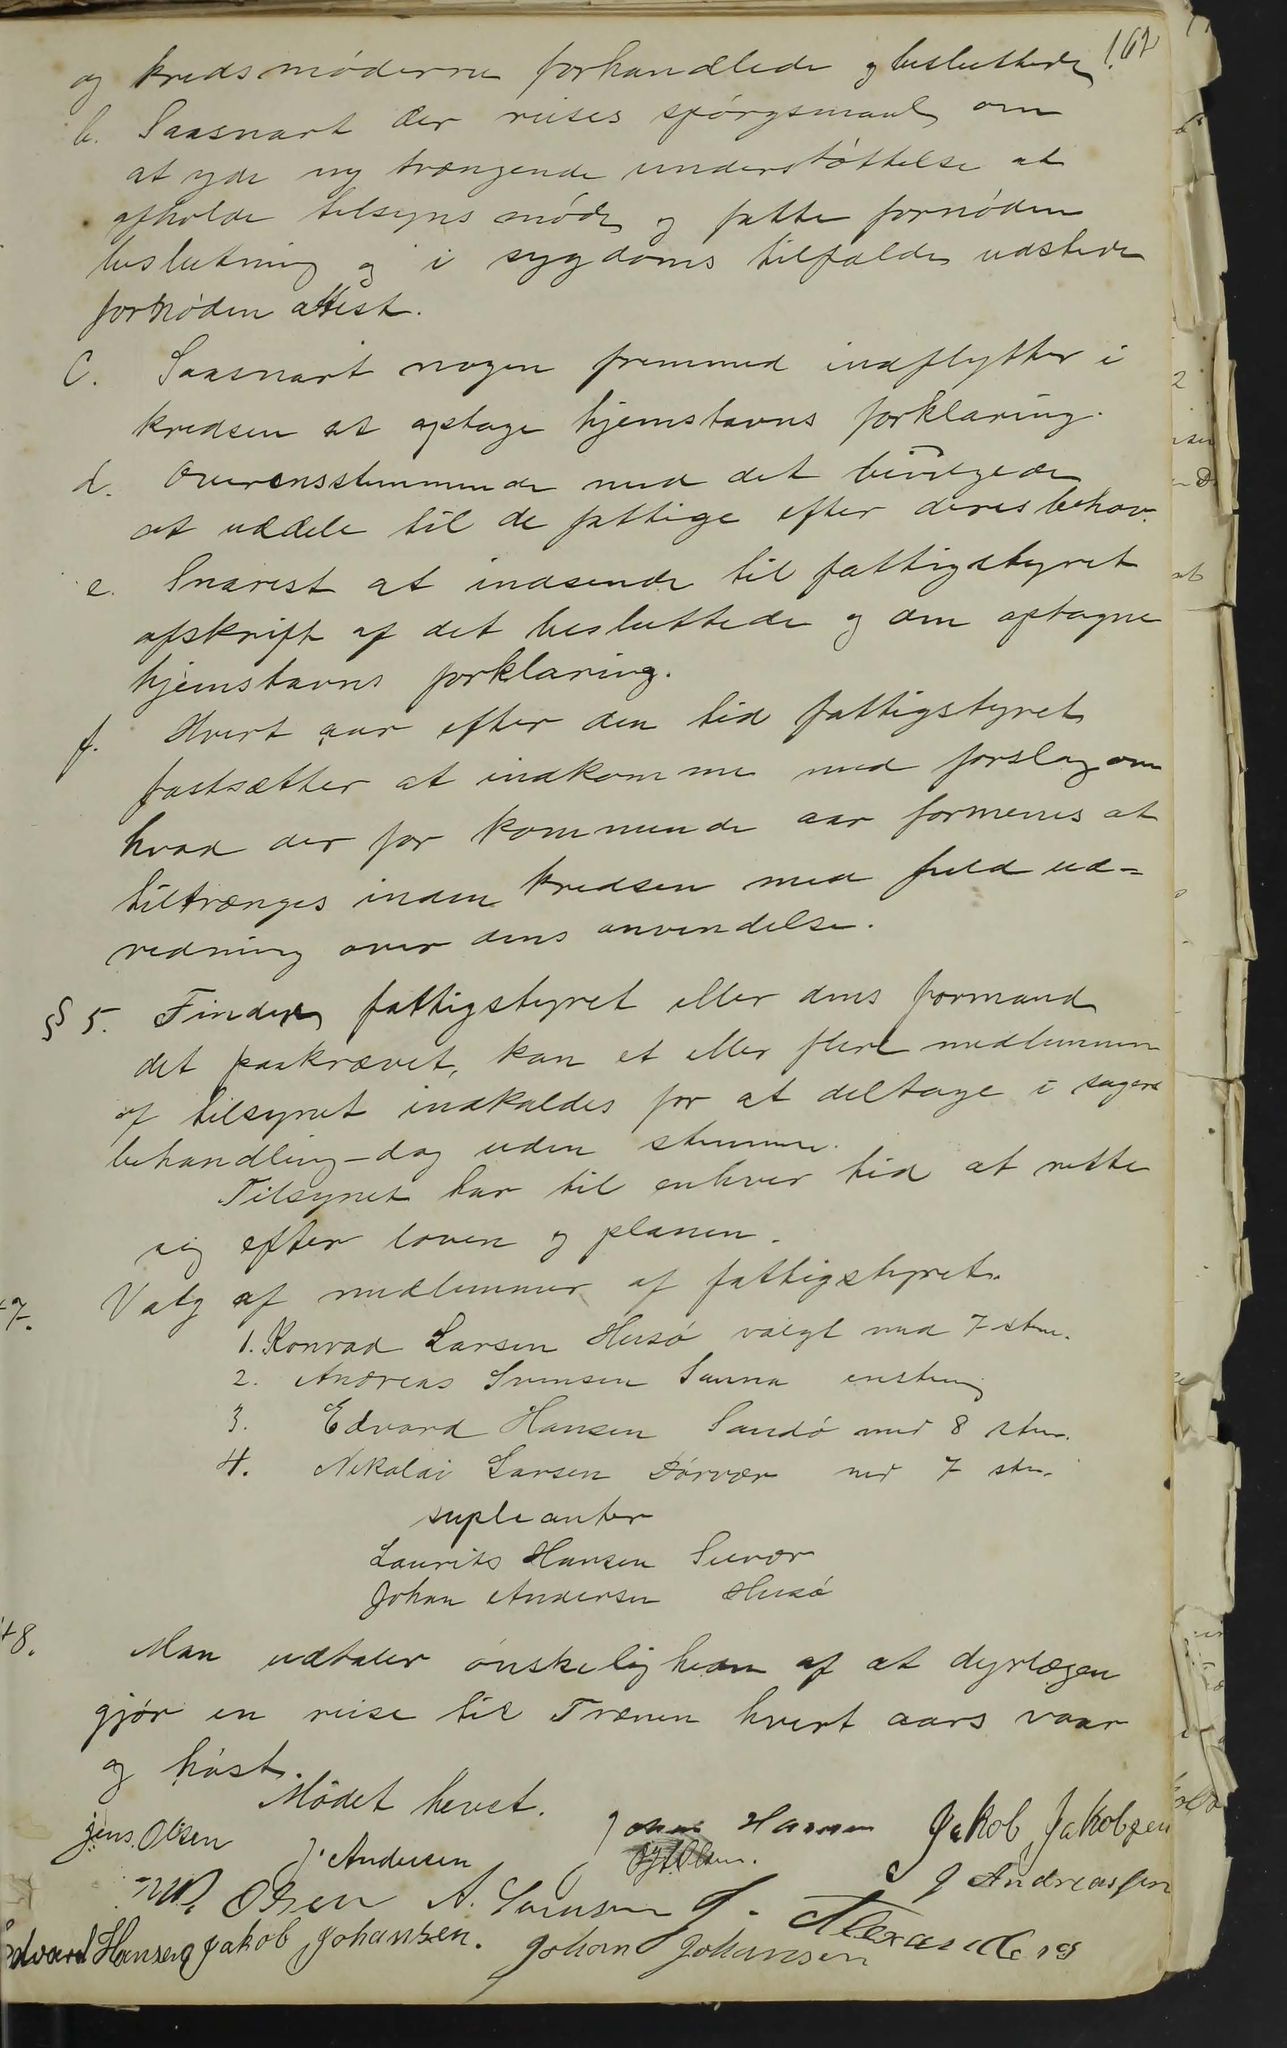 162
og kredsmøderne forhandlede og besluttede.
b. Saasnart der reises spørgsmaal om
at yde ny trængende understøttelse at
afholde tilsynsmøde og fatte fornøden
beslutning og i sygdoms tilfælde udstede
fornøden attest.
C. Saasnart nogen fremmed indflytter i
kredsen at optage hjemstavns forklaring.
d. Overensstemmende med det bevilgede
at uddele til de fattige efter deres behov.
e. Snarest at indsende til fattigstyret
afskrift af det besluttede og om optagne
hjemstavns forklaring.
f. Hvert aar efter den tid fattigstyret
fastsætter at indkomme med forslag om
hvad der for kommende aar formenes at
tiltrænges inden kredsen med fuld ud=
redning over dens anvendelse.
§ 5. Finder fattigstyret eller dens formand
det paakrævet, kan et eller flere medlemmer
af tilsynet indkaldes for at deltage i sagens
behandling - dog uden stemme.
Tilsynet har til enhver tid at rette
sig efter loven og planen.
47. Valg af medlemmer af fattigstyret.
1. Konrad Larsen Husø valgt med 7 stm.
2. Andreas Svensen Sanna enstem
3. Edvard Hansen Sandø med 8 stm.
4. Nikolai Larsen Dørvær med 7 stm.
supleanter
Laurits Hansen Selvær
Johan Andersen Husø
48. Man udtaler ønskeligheden af at dyrlægen
gjør en reise til Trænen hvert aars vaar
og høst.
Mødet hevet.
Jens Olsen J. Andersen Johan Hansen Jakob Jakobsen
Olsen A. Svensen J. Andreassen
Edvard Hansen Jakob Johansen. Johan Johansen J. Alexanders